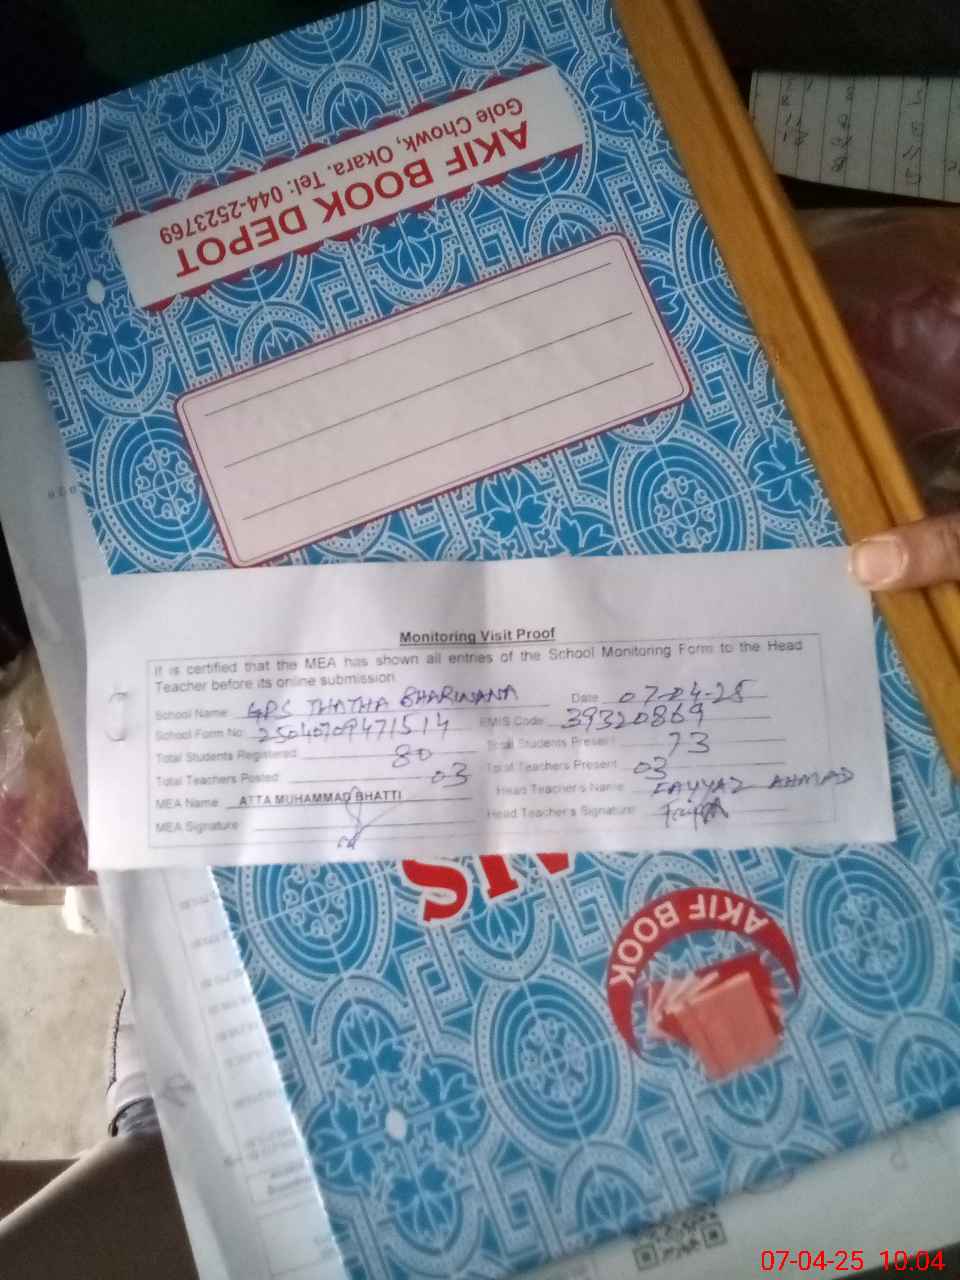 AKIF BOOK DEPOT
Gole Chowk, Okara. Tel: 044-2523769
Monitoring Visit Proof
It is certified that the MEA has shown all entries of the School Monitoring Form to the Head
Teacher before its online submission.
School Name: GPS THATHA BHARIWANA Date: 07-04-25
School Form No: 2504070947151 4 EMIS Code: 39320869
Total Students Registered: 80 Total Students Present: 73
Total Teachers Posted: 03 Total Teachers Present: 03
MEA Name: ATTA MUHAMMAD BHATTI Head Teacher's Name: FAYYAZ AHMAD
MEA Signature: Head Teacher's Signature:
AKIF BOOK
07-04-25 10:04